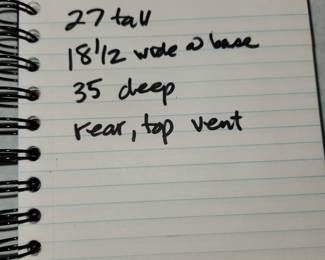 27 tall
18 1/2 wide @ base
35 deep
rear, top vent